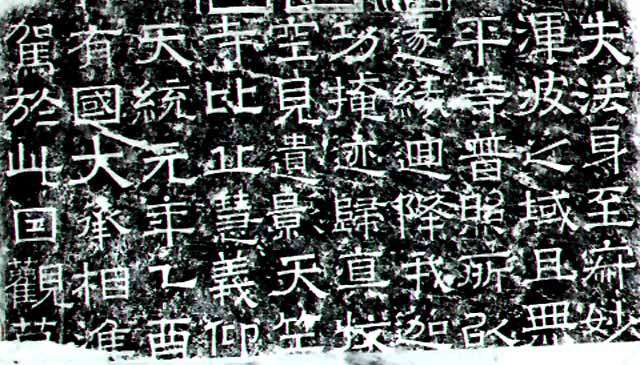 夫法身至妙
渾波之域且無
平等普照所以
迴降我迦
功掩迹歸直
空見遺景天竺
寺比丘慧義仰
天統元年乙酉
有國大承相淮
駕於此回觀